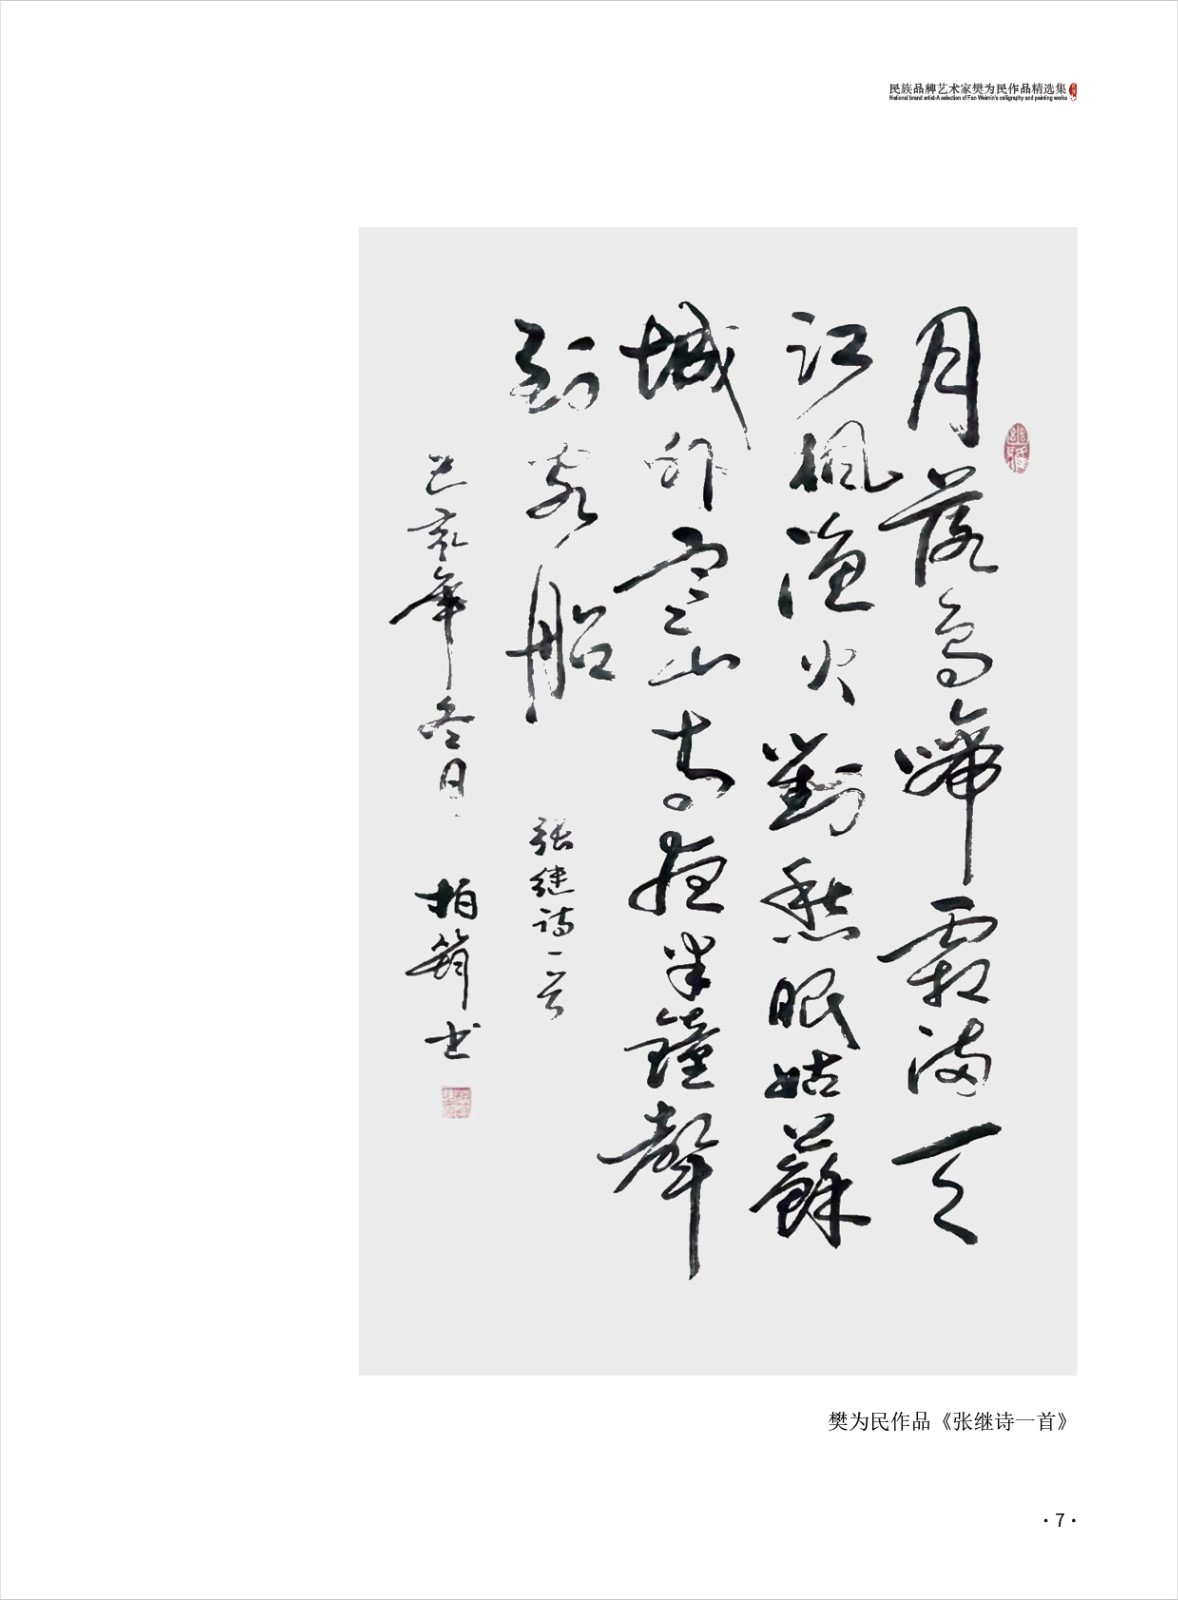 民族品牌艺术家樊为民作品精选集
National brand artist-A selection of Fan Weimin's calligraphy and painting works
月落烏啼霜滿天
江楓漁火對愁眠姑蘇
城外寒山寺夜半鐘聲
到客船
张继诗一首
己亥年冬月
柏筠书
樊为民作品《张继诗一首》
·7·